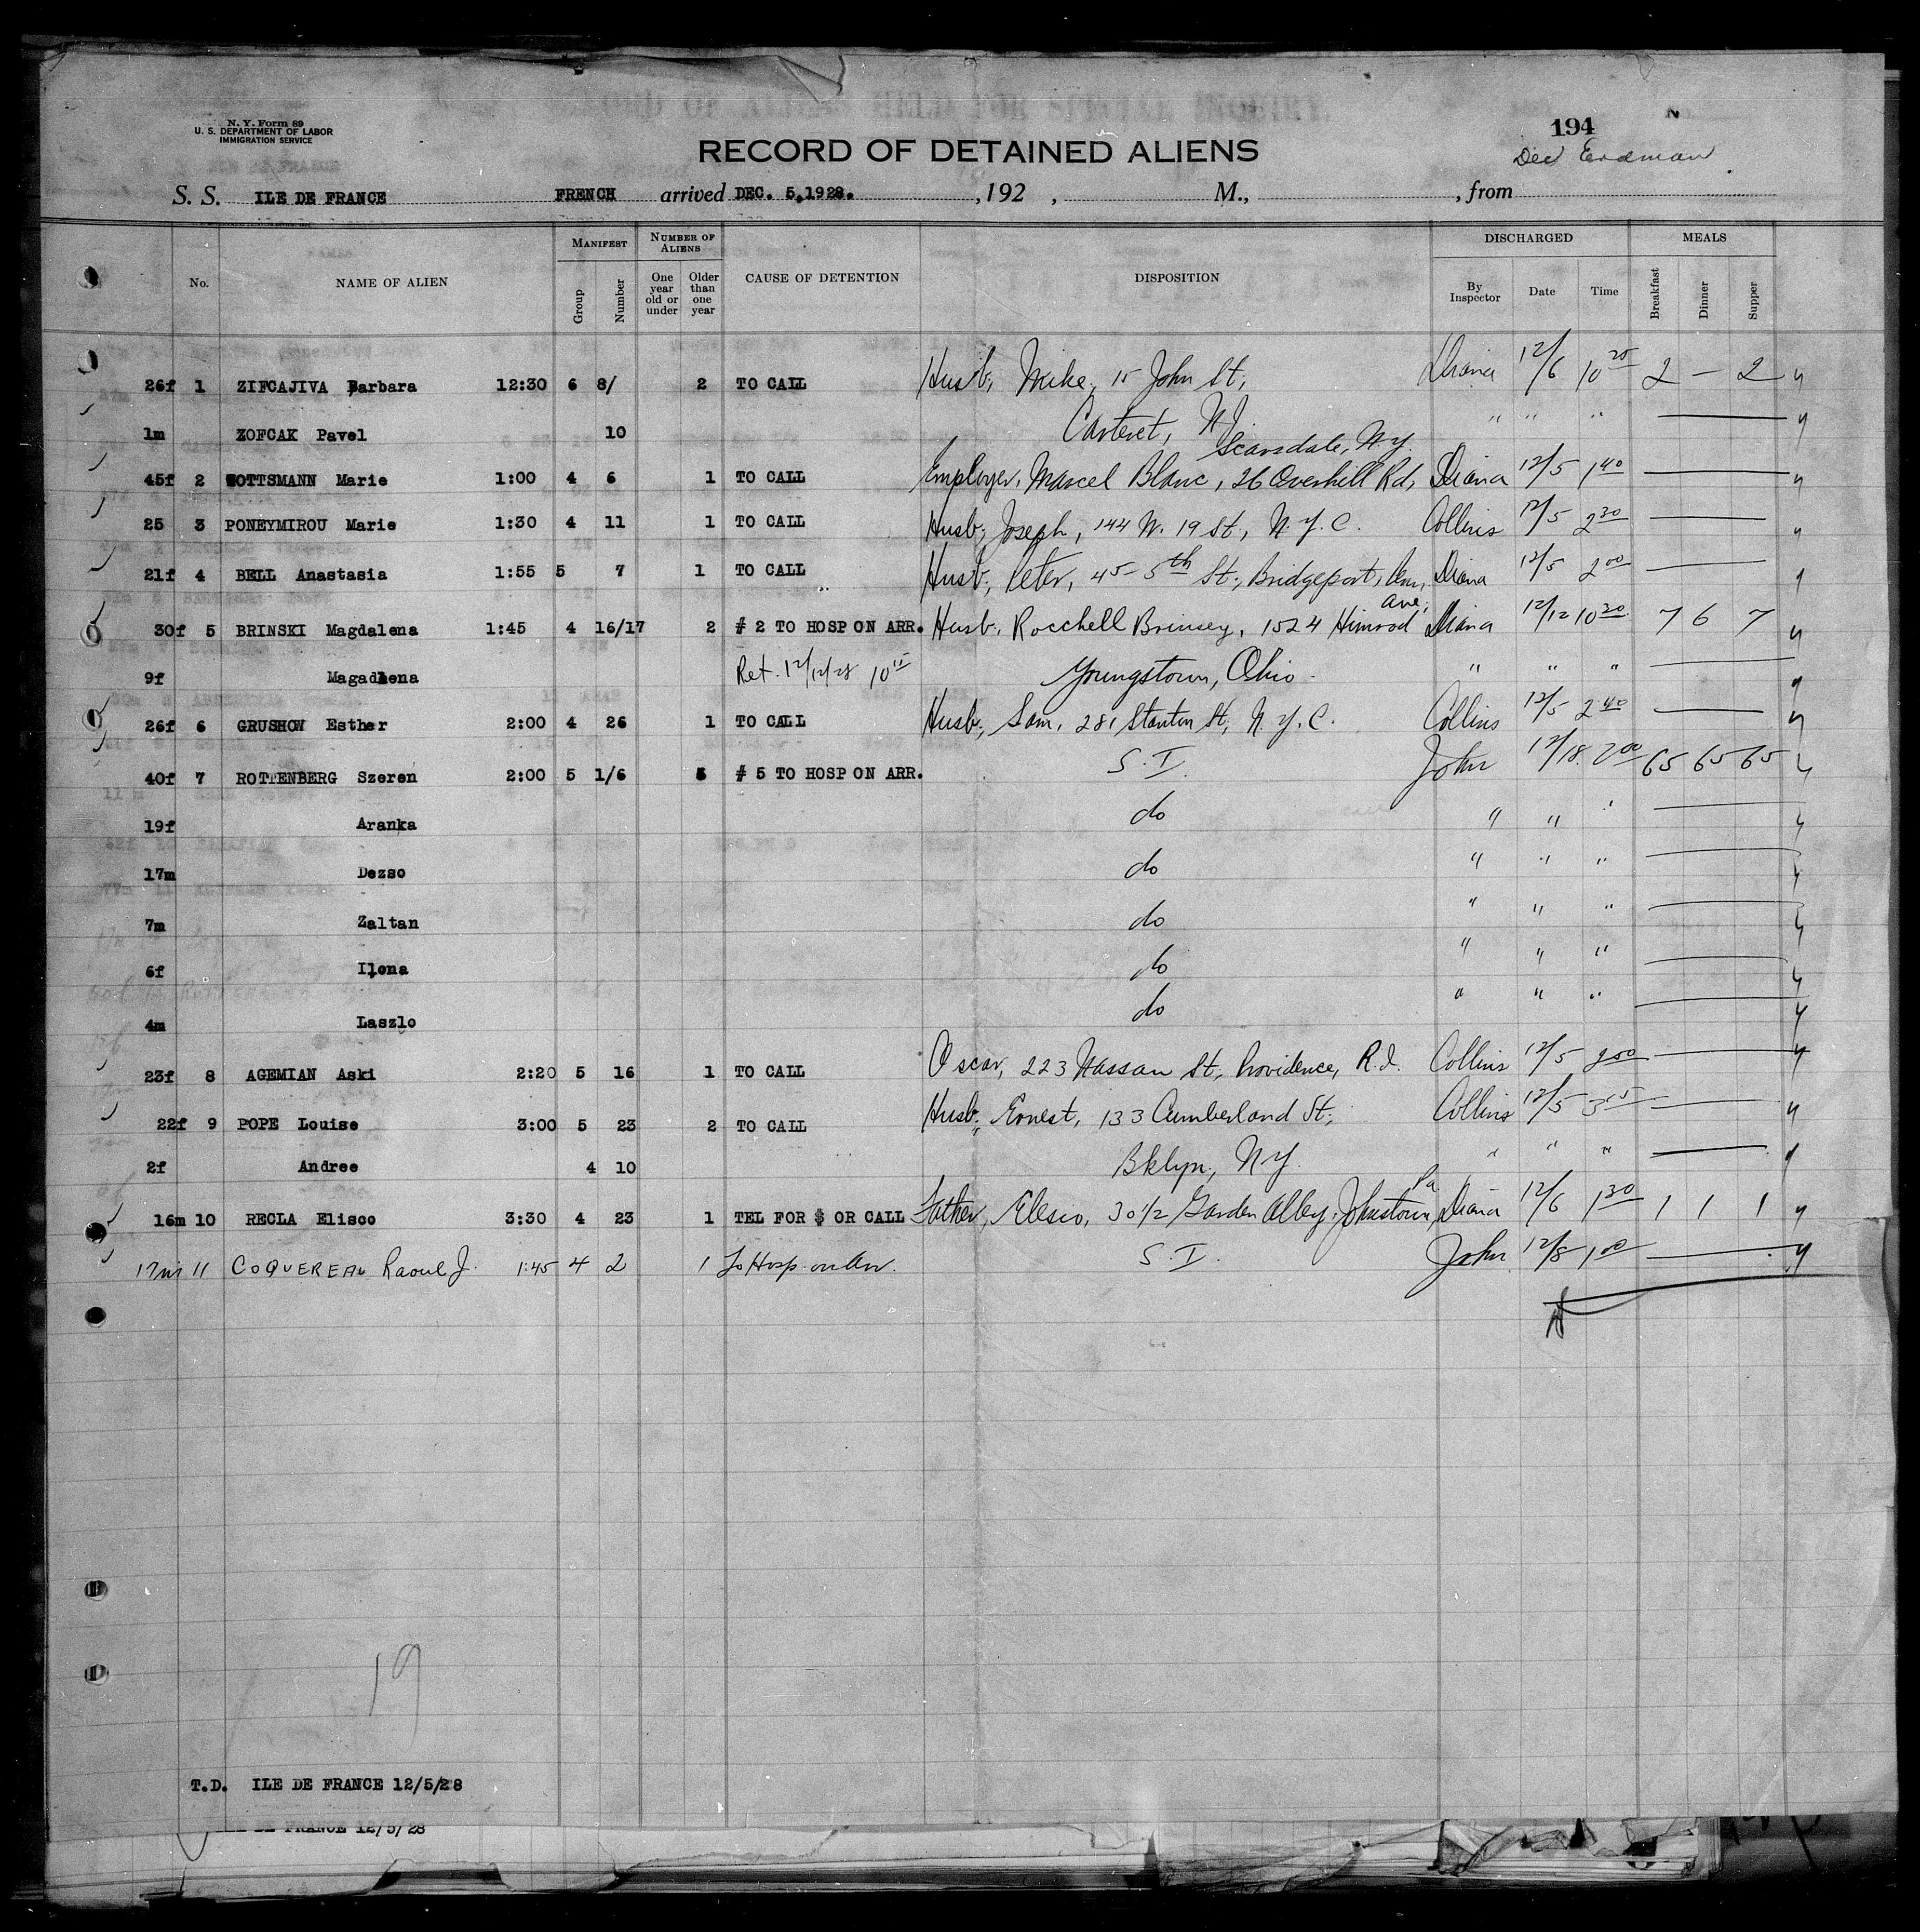 N. Y. Form 89
U. S. DEPARTMENT OF LABOR
IMMIGRATION SERVICE
194
RECORD OF DETAINED ALIENS
S. S. ILE DE FRANCE FRENCH arrived DEC. 5,1928. , 192 , M., , from
No. NAME OF ALIEN MANIFEST Group Number NUMBER OF ALIENS One year old or under Older than one year CAUSE OF DETENTION DISPOSITION DISCHARGED By Inspector Date Time MEALS Breakfast Dinner Supper
26f 1 ZIFCAJIVA Barbara 12:30 6 8/ 2 TO CALL Husb, Mike, 15 John St, Diana 12/6 10 25 2 — 2 y
1m ZOFCAK Pavel 10 Carteret, N.J. " " " y
Scarsdale, N.Y.
45f 2 WOTTSMANN Marie 1:00 4 6 1 TO CALL Employer, Marcel Blanc, 26 Overhill Rd, Diana 12/5 1 40 y
25 3 PONEYMIROU Marie 1:30 4 11 1 TO CALL Husb, Joseph, 144 W. 19 St, N.Y.C. Collins 12/5 2 30 y
21f 4 BELL Anastasia 1:55 5 7 1 TO CALL Husb, Peter, 45-5th St, Bridgeport, Diana 12/5 2 00 y
30f 5 BRINSKI Magdalena 1:45 4 16/17 2 # 2 TO HOSP ON ARR. Husb, Rocchell Brinsey, 1524 Himrod Ave, Diana 12/12 10 30 7 6 7 y
9f Magadlena Ret. 12/12/28 10 15 Youngstown, Ohio. " " " y
26f 6 GRUSHOW Esther 2:00 4 26 1 TO CALL Husb, Sam, 281 Stanton St, N.Y.C. Collins 12/5 2 40 y
40f 7 ROTTENBERG Szeren 2:00 5 1/6 5 # 5 TO HOSP ON ARR. S.I. John 12/18 2 00 65 65 65 y
19f Aranka do " " " y
17m Dezso do " " " y
7m Zaltan do " " " y
6f Ilona do " " " y
4m Laszlo do " " " y
23f 8 AGEMIAN Aski 2:20 5 16 1 TO CALL Oscar, 223 Nassau St, Providence, R.I. Collins 12/5 2 50 y
22f 9 POPE Louise 3:00 5 23 2 TO CALL Husb, Ernest, 133 Cumberland St, Collins 12/5 3 15 y
2f Andree 4 10 Bklyn, N.Y. " " " y
16m 10 RECLA Elisco 3:30 4 23 1 TEL FOR $ OR CALL Father, Elesio, 30 1/2 Garden Alley, Johnstown, Pa Diana 12/6 1 30 1 1 1 y
17m 11 COQUEREAU Raoul J. 1:45 4 2 1 To Hosp. on Arr. S.I. John 12/8 1 00 y
19
T.D. ILE DE FRANCE 12/5/28
DE FRANCE 12/5/28